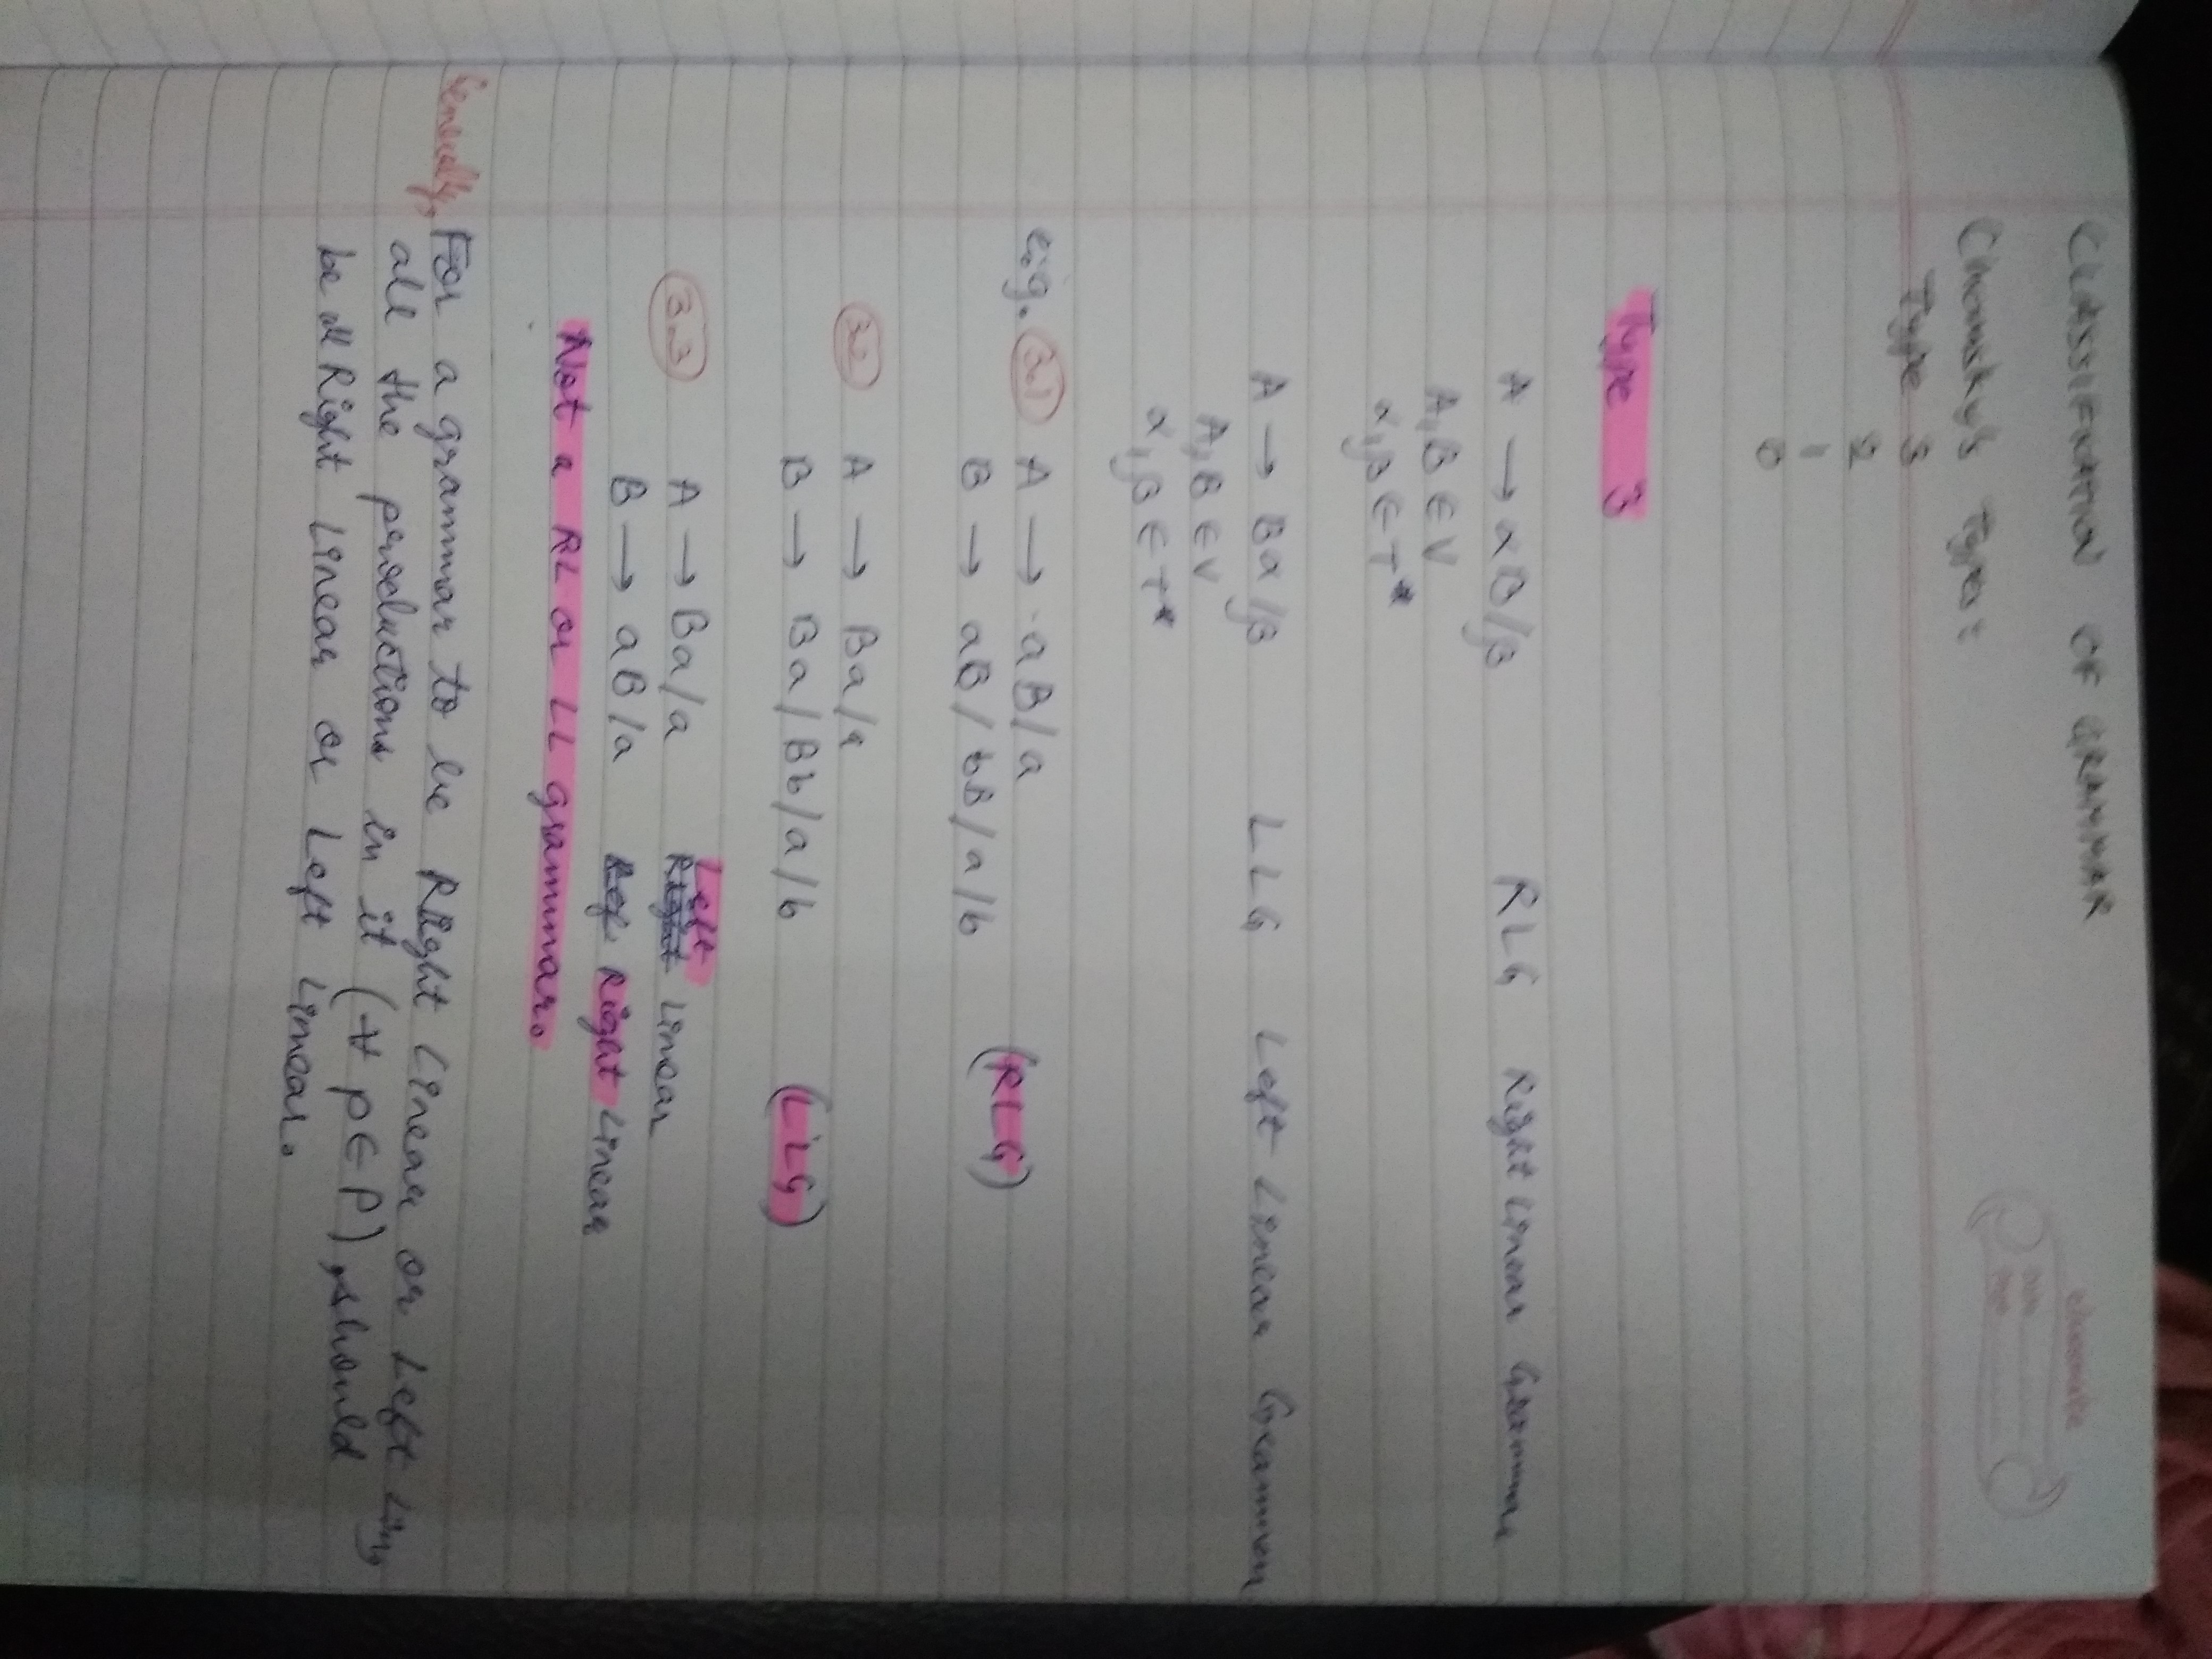 classmate
Date
Page
CLASSIFICATION OF GRAMMAR
Chomsky's Types:
Type 3
2
1
0
Type 3
A → αB/β RLG Right Linear Grammar
A,B ∈ V
α,β ∈ T*
A → Bα/β LLG Left Linear Grammar
A,B ∈ V
α,β ∈ T*
e.g. 3.1 A → aB/a
B → aB/bB/a/b (RLG)
3.2 A → Ba/a
B → Ba/Bb/a/b (LLG)
3.3 A → Ba/a Left Linear
B → aB/a Right Linear
Not a RL or LL grammar.
Generally, For a grammar to be Right Linear or Left Liny
all the productions in it (∀ p ∈ P), should
be all Right Linear or Left Linear.